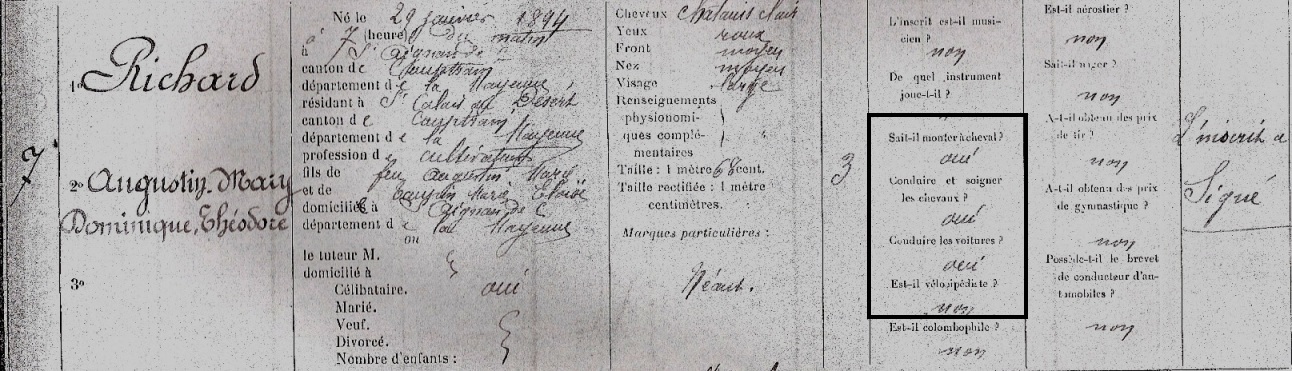 7
1o Richard
2o Augustin, Mary
Dominique, Théodore
3o
Né le 29 janvier 1894
à 7 (heure) du matin
à St Aignan de
canton de Couptrain
département de la Mayenne
résidant à St Calais du Désert
canton de Couptrain
département de la Mayenne
profession de cultivateur
fils de feu Augustin Marie
et de Marie
domiciliés à St Aignan de C
département de la Mayenne
ou
le tuteur M.
domicilié à
Célibataire. oui
Marié.
Veuf.
Divorcé.
Nombre d'enfants :
Cheveux Chatains clairs
Yeux roux
Front moyen
Nez moyen
Visage large
Renseignements
physionomi-
ques complé-
mentaires
Taille : 1 mètre 68 cent.
Taille rectifiée : 1 mètre
centimètres.
Marques particulières :
Néant.
3
L'inscrit est-il musi-
cien ?
non
De quel instrument
joue-t-il ?
"
Sait-il monter à cheval ?
oui
Conduire et soigner
les chevaux ?
oui
Conduire les voitures ?
oui
Est-il vélocipédiste ?
non
Est-il colombophile ?
non
Est-il aérostier ?
non
Sait-il nager ?
non
A-t-il obtenu des prix
de tir ?
non
A-t-il obtenu des prix
de gymnastique ?
non
Possède-t-il le brevet
de conducteur d'au-
tomobiles ?
non
L'inscrit a
Signé